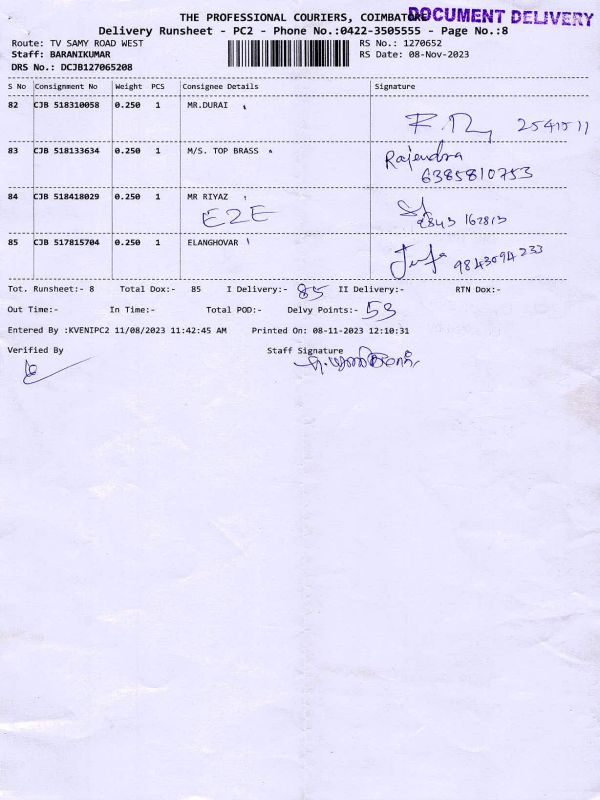 THE PROFESSIONAL COURIERS, COIMBATORE
DOCUMENT DELIVERY
Delivery Runsheet - PC2 - Phone No.:0422-3505555 - Page No.:8
Route: TV SAMY ROAD WEST RS No.: 1270652
Staff: BARANIKUMAR RS Date: 08-Nov-2023
DRS No.: DCJB127065208
S No Consignment No Weight PCS Consignee Details Signature
82 CJB 518310058 0.250 1 MR.DURAI
2541511
83 CJB 518133634 0.250 1 M/S. TOP BRASS Rajendra
6385810753
84 CJB 518418029 0.250 1 MR RIYAZ
E2E 9843 162813
85 CJB 517815704 0.250 1 ELANGHOVAR
9843094233
Tot. Runsheet:- 8 Total Dox:- 85 I Delivery:- 85 II Delivery:- RTN Dox:-
Out Time:- In Time:- Total POD:- Delvy Points:- 53
Entered By :KVENIPC2 11/08/2023 11:42:45 AM Printed On: 08-11-2023 12:10:31
Verified By Staff Signature